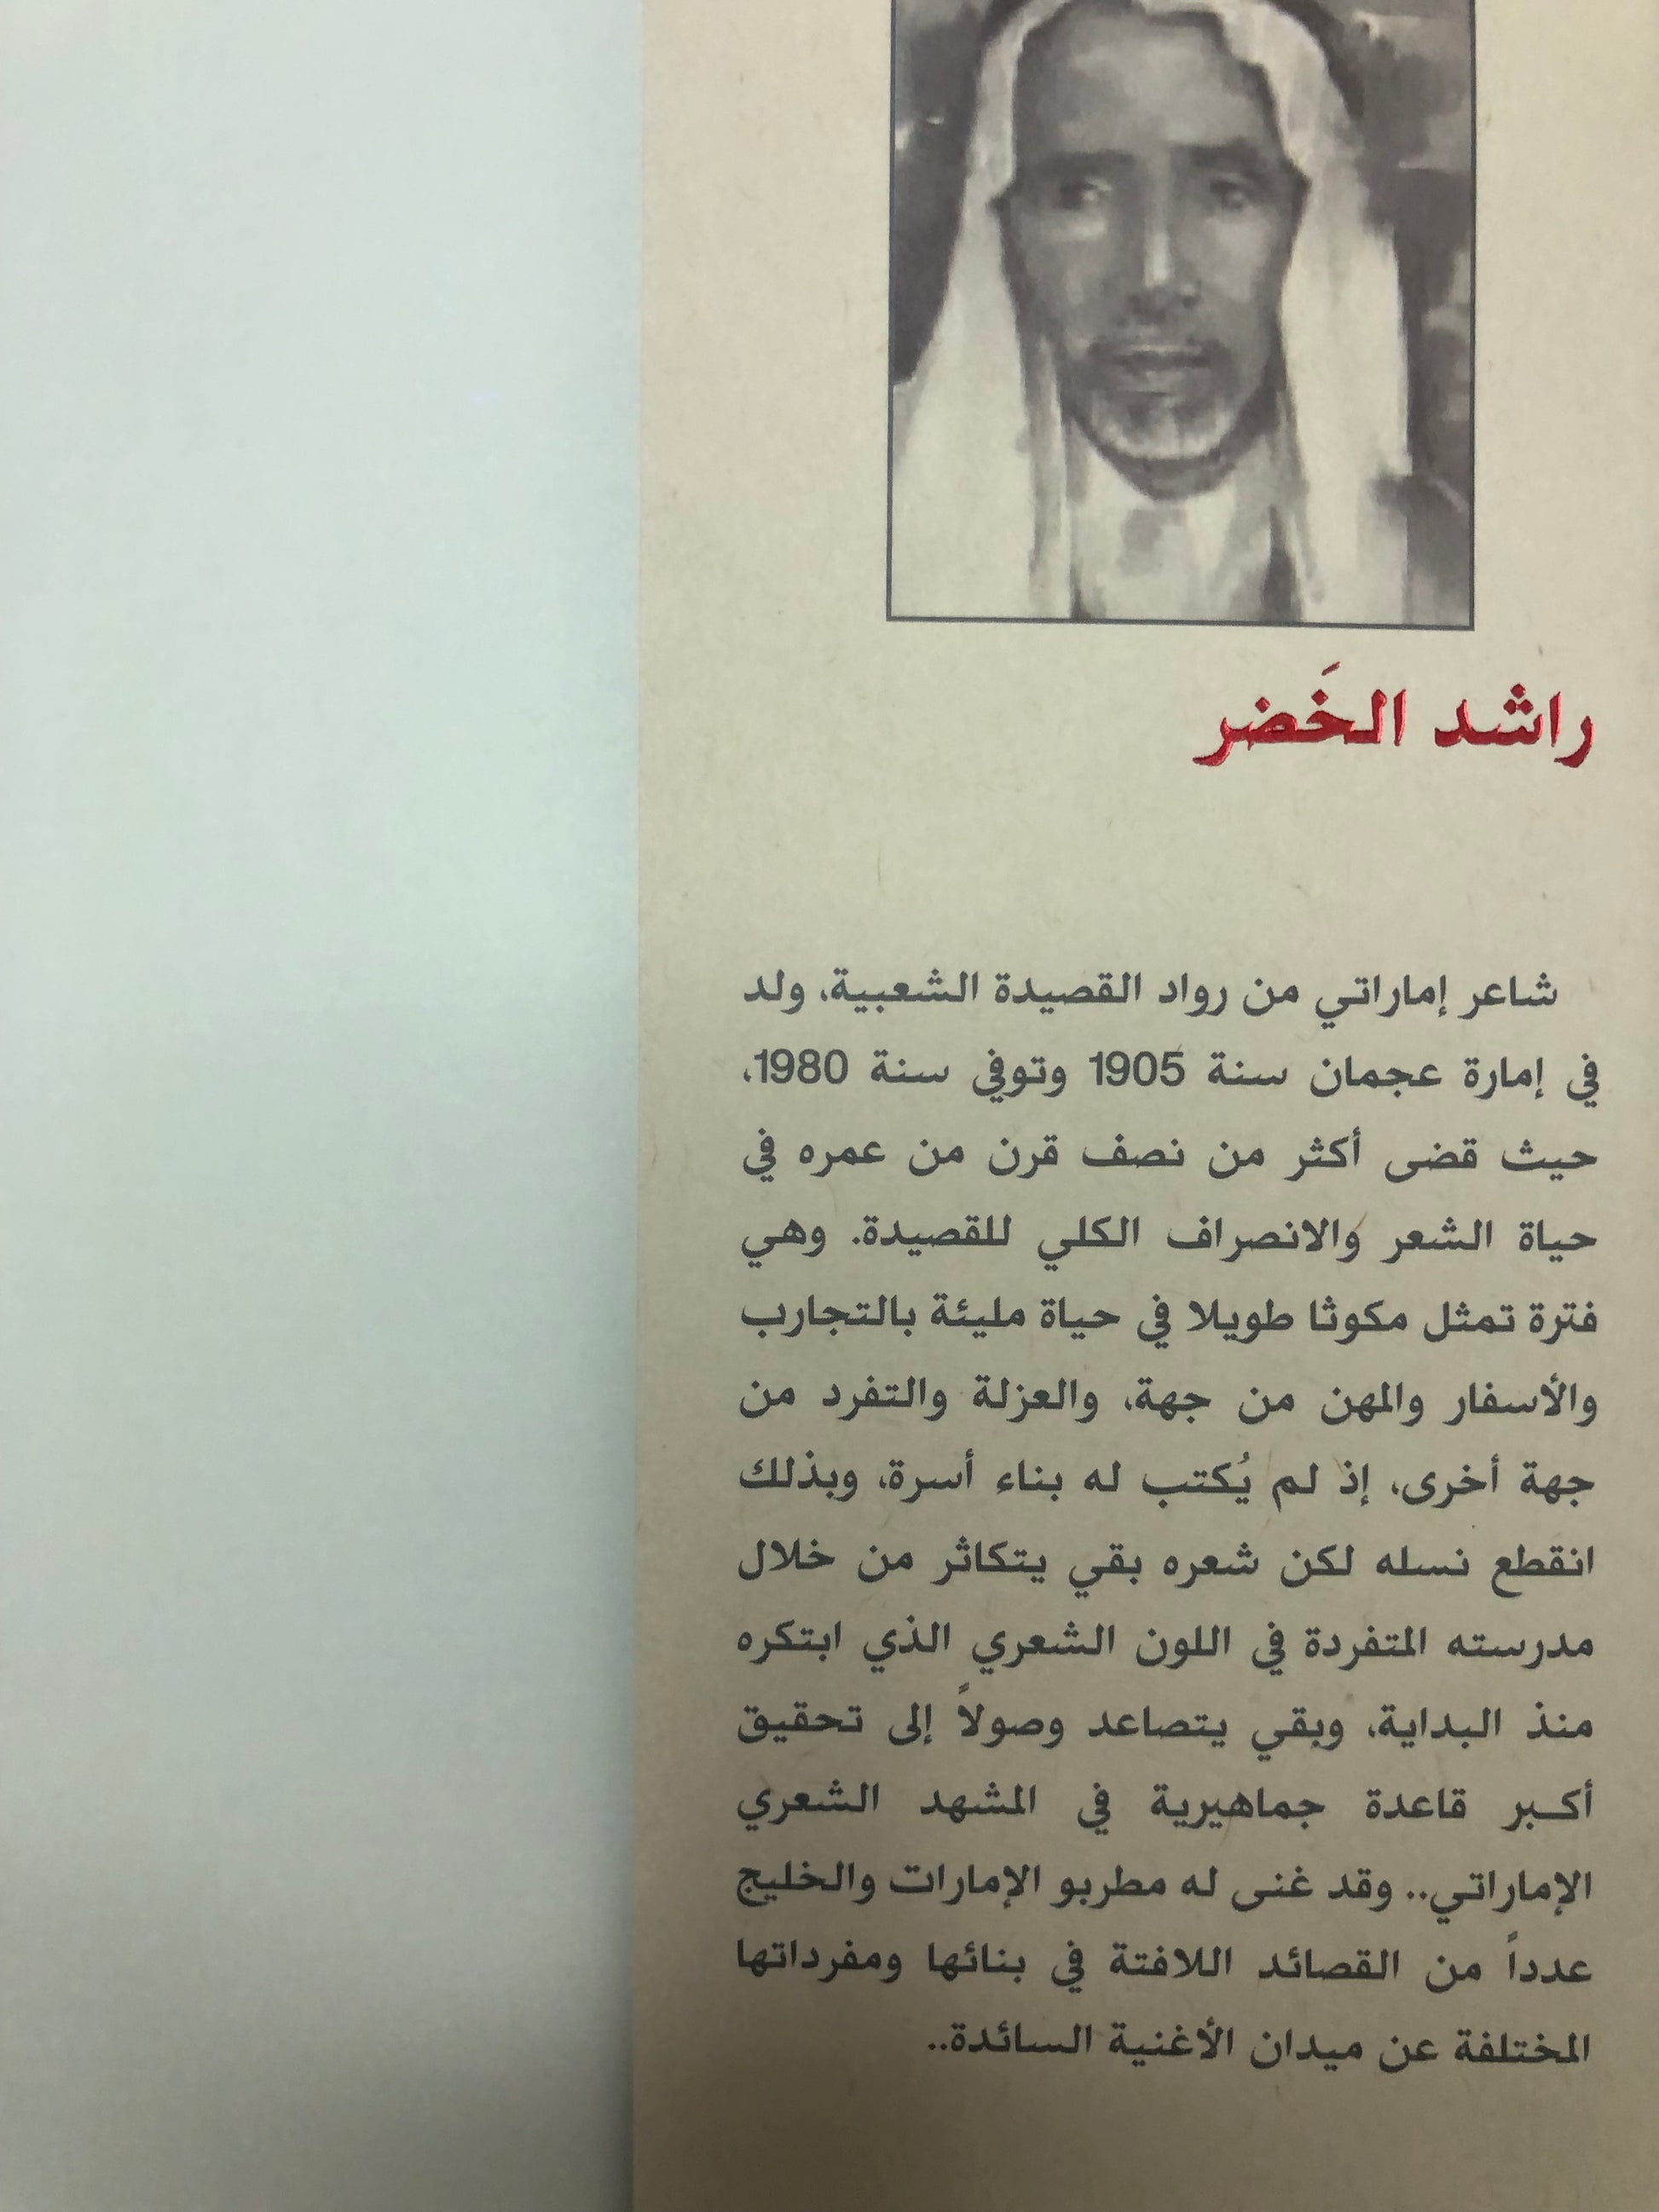 راشد الخَضر
شاعر إماراتي من رواد القصيدة الشعبية، ولد
في إمارة عجمان سنة 1905 وتوفي سنة 1980،
حيث قضى أكثر من نصف قرن من عمره في
حياة الشعر والانصراف الكلي للقصيدة. وهي
فترة تمثل مكوثا طويلا في حياة مليئة بالتجارب
والأسفار والمهن من جهة، والعزلة والتفرد من
جهة أخرى، إذ لم يُكتب له بناء أسرة، وبذلك
انقطع نسله لكن شعره بقي يتكاثر من خلال
مدرسته المتفردة في اللون الشعري الذي ابتكره
منذ البداية، وبقي يتصاعد وصولاً إلى تحقيق
أكـبر قاعدة جماهيرية في المشهد الشعري
الإماراتي.. وقد غنى له مطربو الإمارات والخليج
عدداً من القصائد اللافتة في بنائها ومفرداتها
المختلفة عن ميدان الأغنية السائدة..